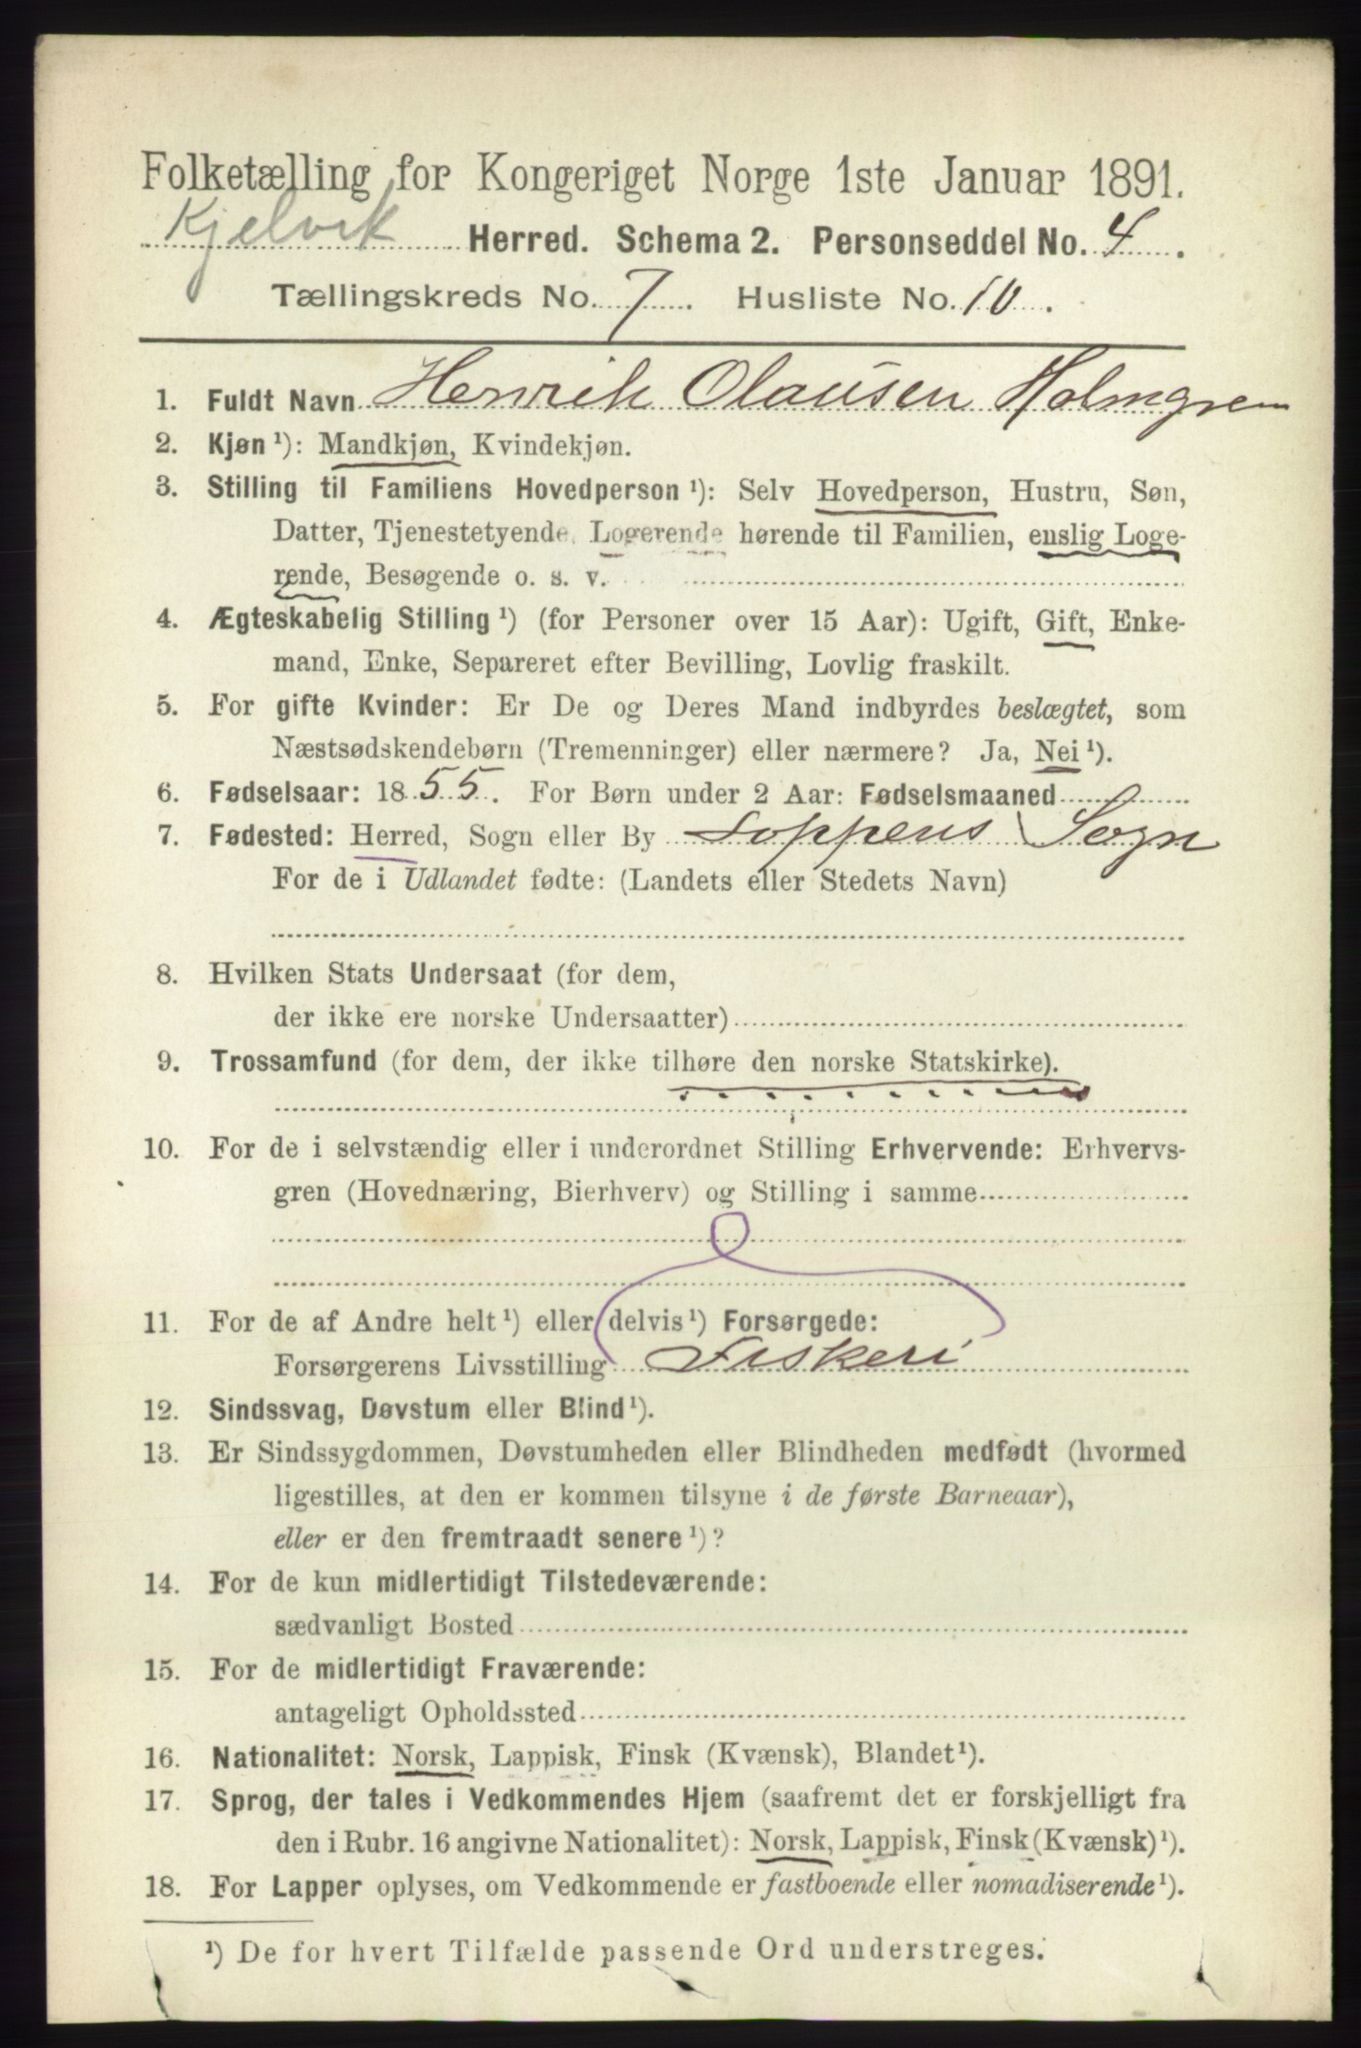 Folketælling for Kongeriget Norge 1ste Januar 1891.
Kjelvik Herred. Schema 2. Personseddel No. 4.
Tællingskreds No. 7. Husliste No. 10.
1. Fuldt Navn Henrik Olausen Holmgren
2. Kjøn ¹): Mandkjøn, Kvindekjøn.
3. Stilling til Familiens Hovedperson ¹): Selv Hovedperson, Hustru, Søn,
Datter, Tjenestetyende, Logerende hørende til Familien, enslig Loge-
rende, Besøgende o. s. v.
4. Ægteskabelig Stilling ¹) (for Personer over 15 Aar): Ugift, Gift, Enke-
mand, Enke, Separeret efter Bevilling, Lovlig fraskilt.
5. For gifte Kvinder: Er De og Deres Mand indbyrdes beslægtet, som
Næstsødskendebørn (Tremenninger) eller nærmere? Ja, Nei ¹).
6. Fødselsaar: 1855. For Børn under 2 Aar: Fødselsmaaned
7. Fødested: Herred, Sogn eller By Loppens Sogn
For de i Udlandet fødte: (Landets eller Stedets Navn)
8. Hvilken Stats Undersaat (for dem,
der ikke ere norske Undersaatter)
9. Trossamfund (for dem, der ikke tilhøre den norske Statskirke).
10. For de i selvstændig eller i underordnet Stilling Erhvervende: Erhvervs-
gren (Hovednæring, Bierhverv) og Stilling i samme
11. For de af Andre helt ¹) eller delvis ¹) Forsørgede:
Forsørgerens Livsstilling Fiskeri
12. Sindssvag, Døvstum eller Blind ¹).
13. Er Sindssygdommen, Døvstumheden eller Blindheden medfødt (hvormed
ligestilles, at den er kommen tilsyne i de første Barneaar),
eller er den fremtraadt senere ¹)?
14. For de kun midlertidigt Tilstedeværende:
sædvanligt Bosted
15. For de midlertidigt Fraværende:
antageligt Opholdssted
16. Nationalitet: Norsk, Lappisk, Finsk (Kvænsk), Blandet ¹).
17. Sprog, der tales i Vedkommendes Hjem (saafremt det er forskjelligt fra
den i Rubr. 16 angivne Nationalitet): Norsk, Lappisk, Finsk (Kvænsk) ¹).
18. For Lapper oplyses, om Vedkommende er fastboende eller nomadiserende ¹).
¹) De for hvert Tilfælde passende Ord understreges.